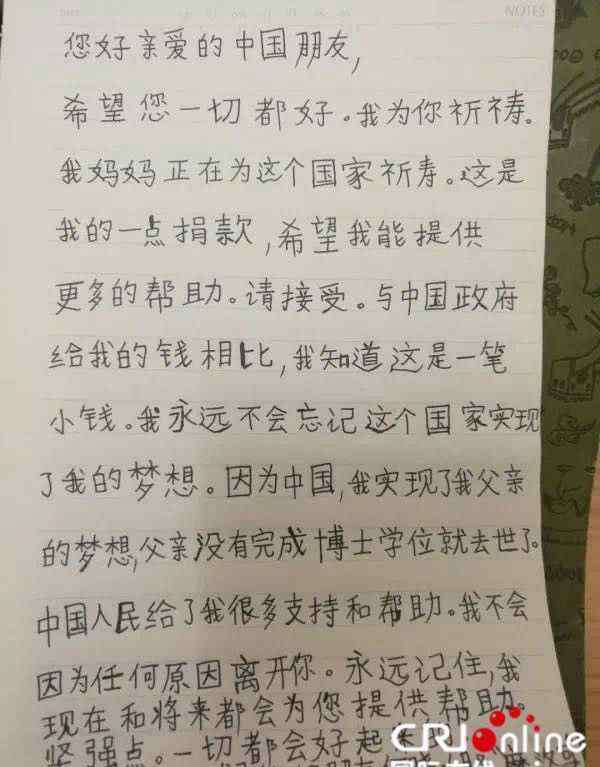 NOTES
您好亲爱的中国朋友,
希望您一切都好。我为你祈祷。
我妈妈正在为这个国家祈寿。这是
我的一点捐款,希望我能提供
更多的帮助。请接受。与中国政府
给我的钱相比,我知道这是一笔
小钱。我永远不会忘记这个国家实现
了我的梦想。因为中国,我实现了我父亲
的梦想,父亲没有完成博士学位就去世了。
中国人民给了我很多支持和帮助。我不会
因为任何原因离开你。永远记住,我
现在和将来都会为您提供帮助。
坚强点。一切都会好起
CRI online
国际在线